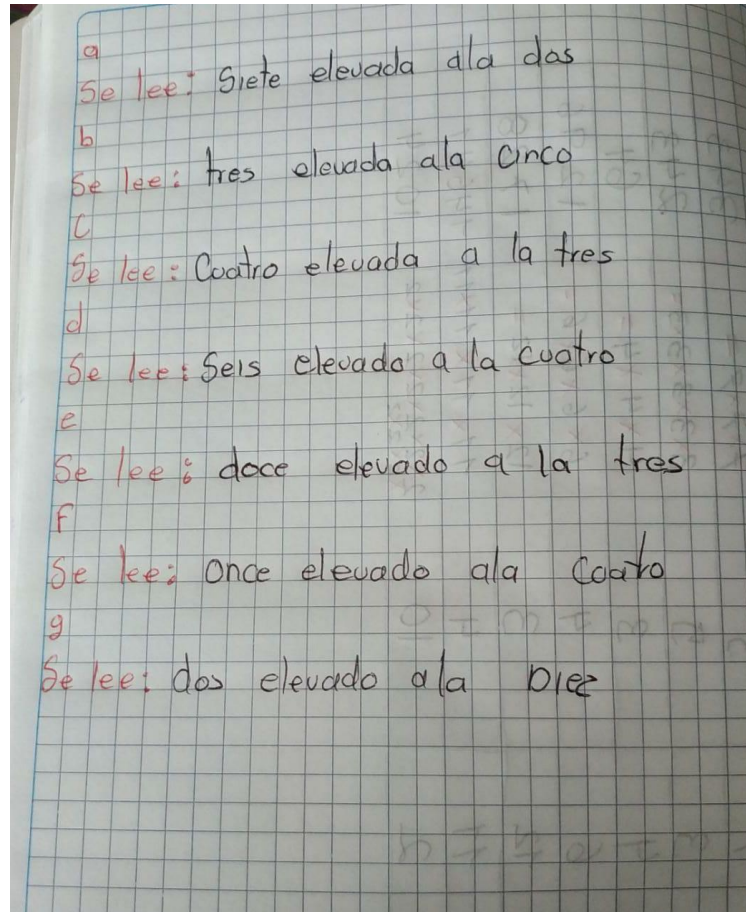 a
Se lee: Siete elevada ala dos
b
Se lee: tres elevada ala cinco
C
Se lee: Cuatro elevada a la tres
d
Se lee: Seis elevado a la cuatro
e
Se lee: doce elevado a la tres
F
Se lee: Once elevado ala Coatro
g
Se lee: dos elevado ala Diez